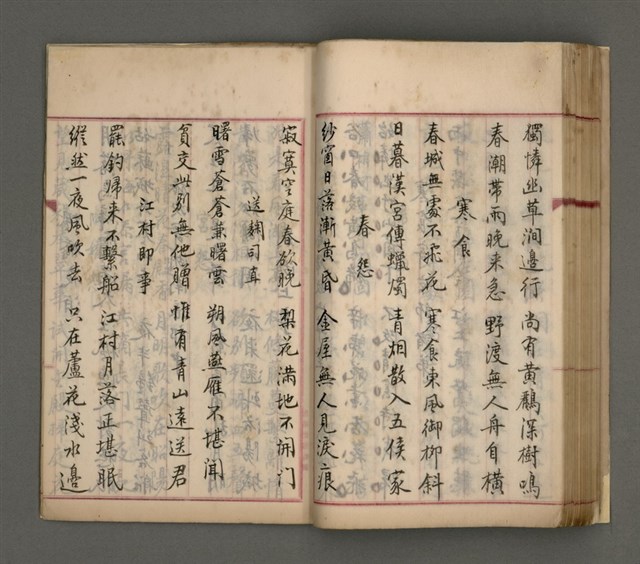 獨憐幽草澗邊行　尚有黃鸝深樹鳴
春潮帶雨晚来急　野渡無人舟自横
寒食
春城無處不飛花　寒食東風御柳斜
日暮漢宮傳蠟燭　青烟散入五侯家
春怨
紗窗日落漸黃昏　金屋無人見淚痕
寂寞空庭春欲晚　梨花滿地不開门
送魏司直
曙雪蒼蒼兼曙雲　朔風燕雁不堪聞
貧交此别無他贈　惟有青山遠送君
江村即事
罷釣歸来不繫船　江村月落正堪眠
縱然一夜風吹去　只在蘆花淺水邊